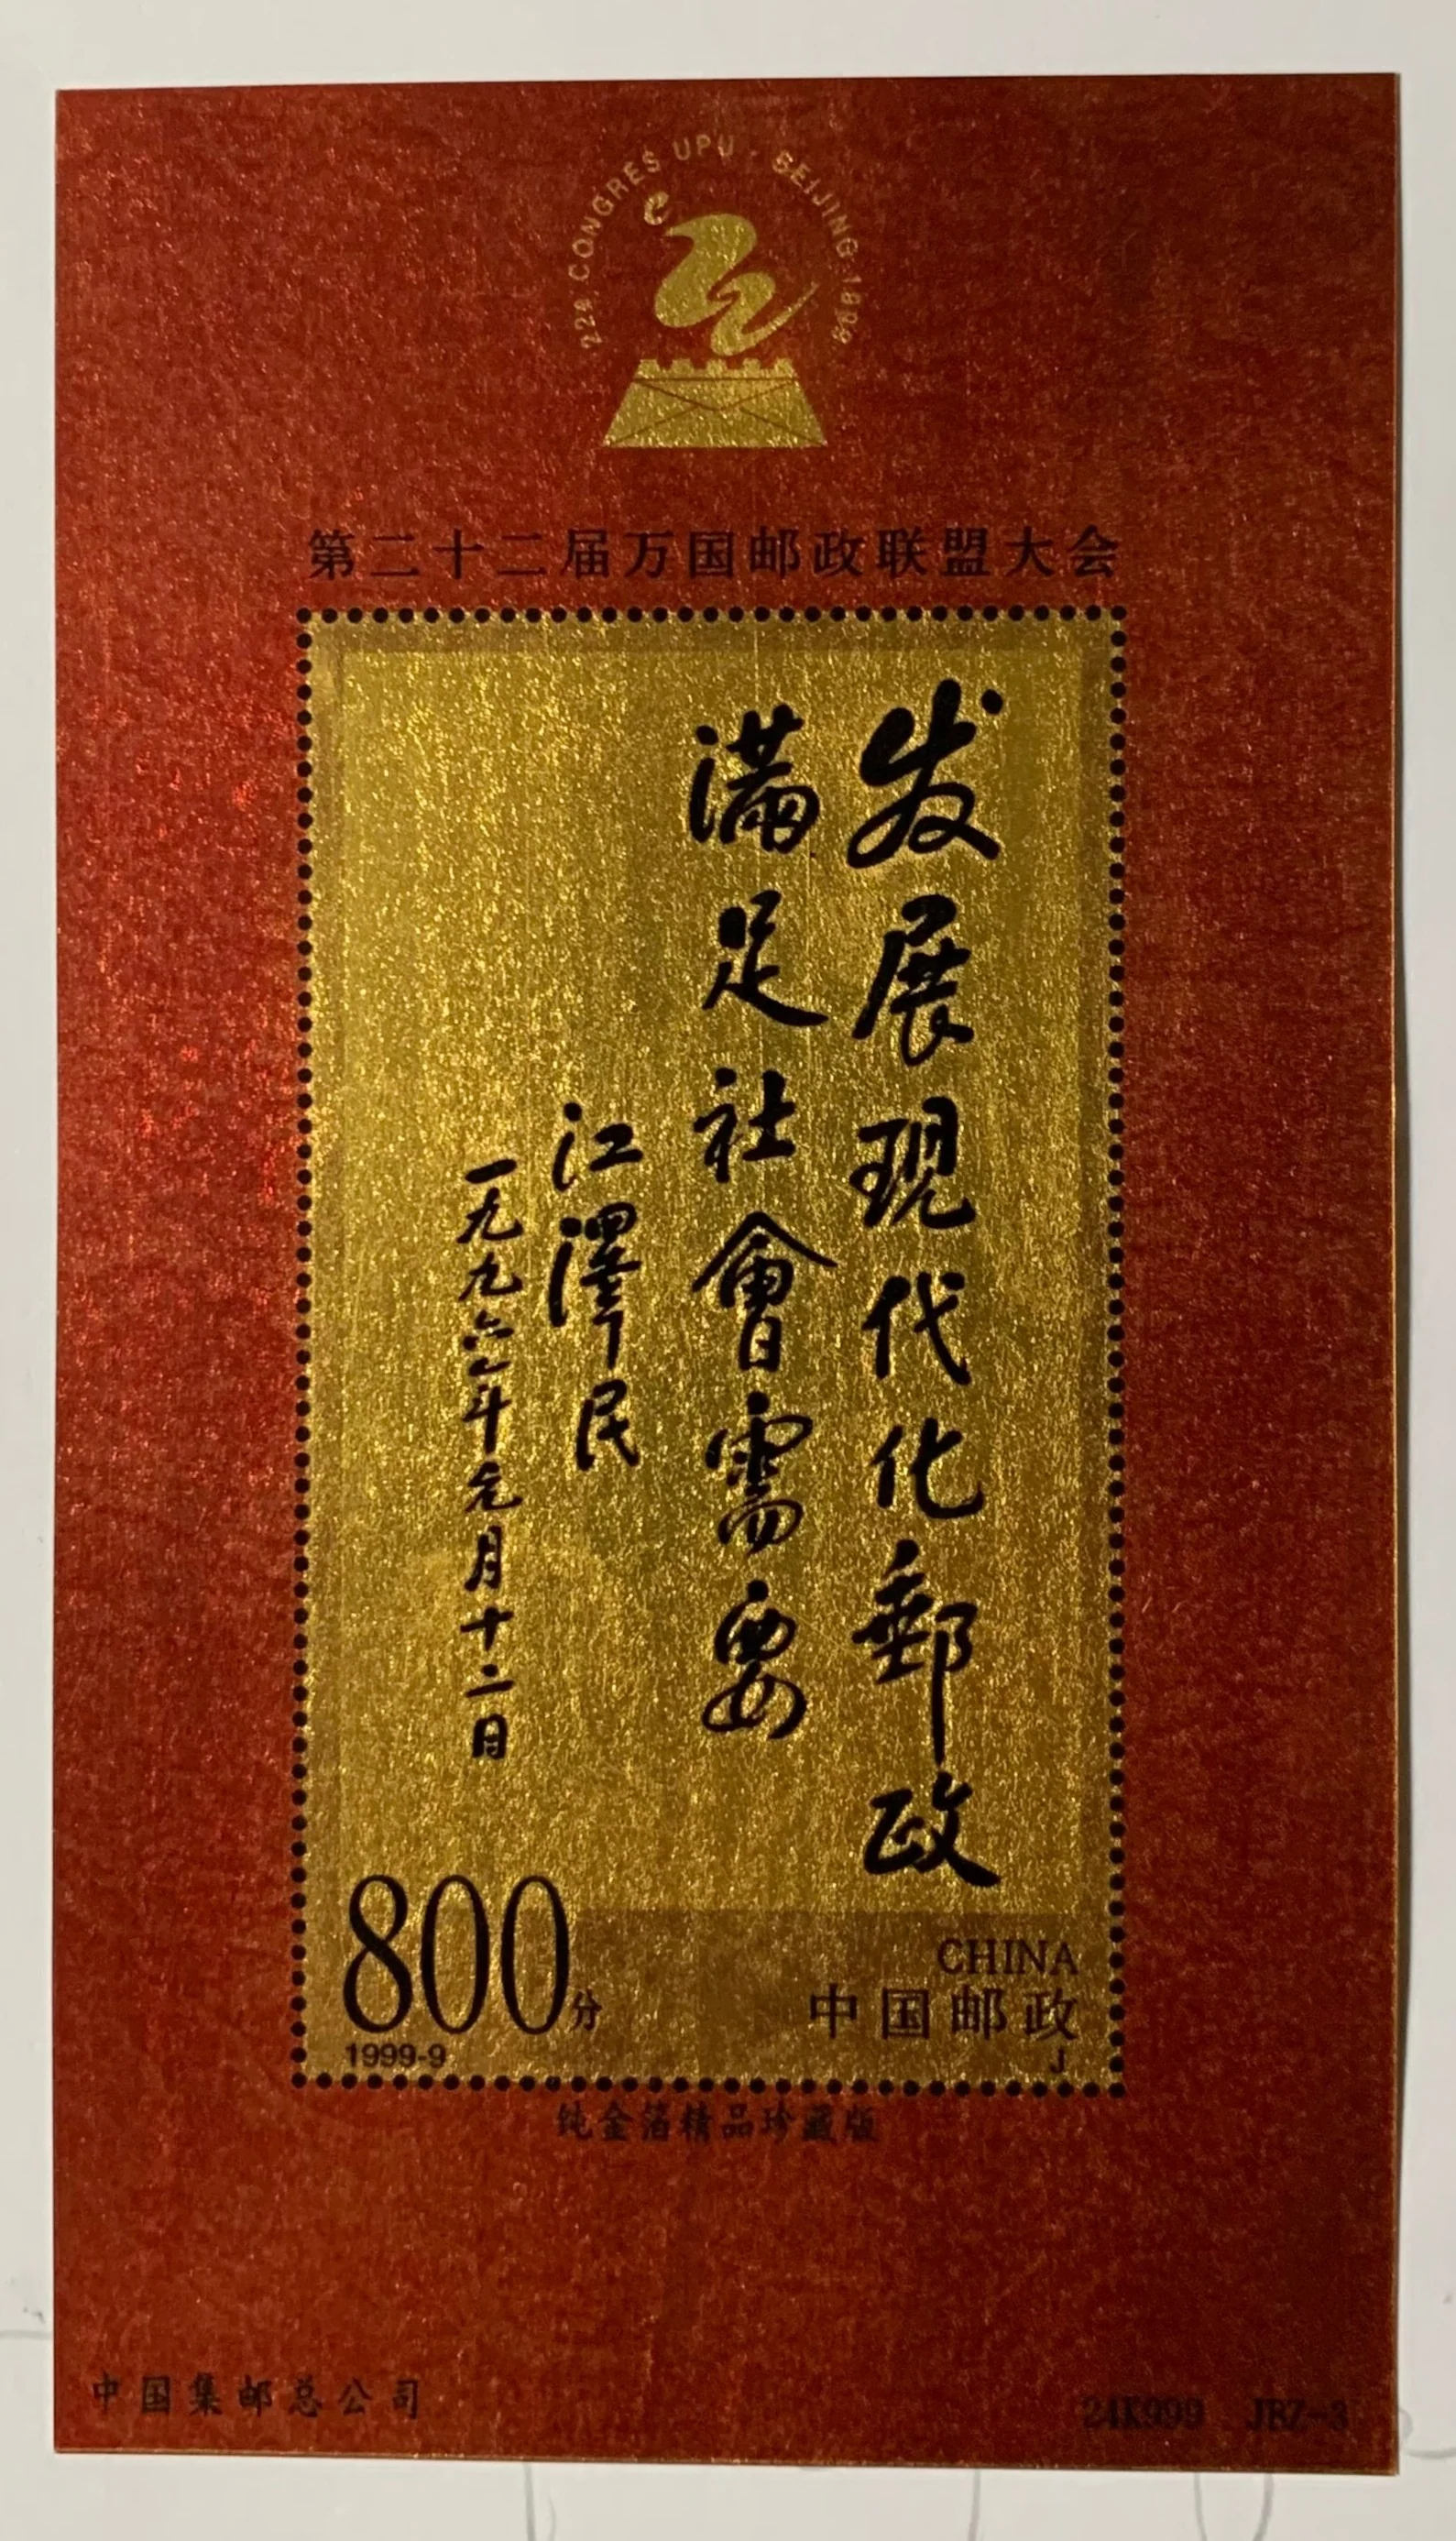 22e CONGRES UPU · BEIJING 1999
第二十二届万国邮政联盟大会
发展现代化郵政
满足社會需要
江澤民
一九九六年元月十二日
800分
CHINA
中国邮政
1999-9
J
纯金箔精品珍藏版
中国集邮总公司
24K999 JBZ-3